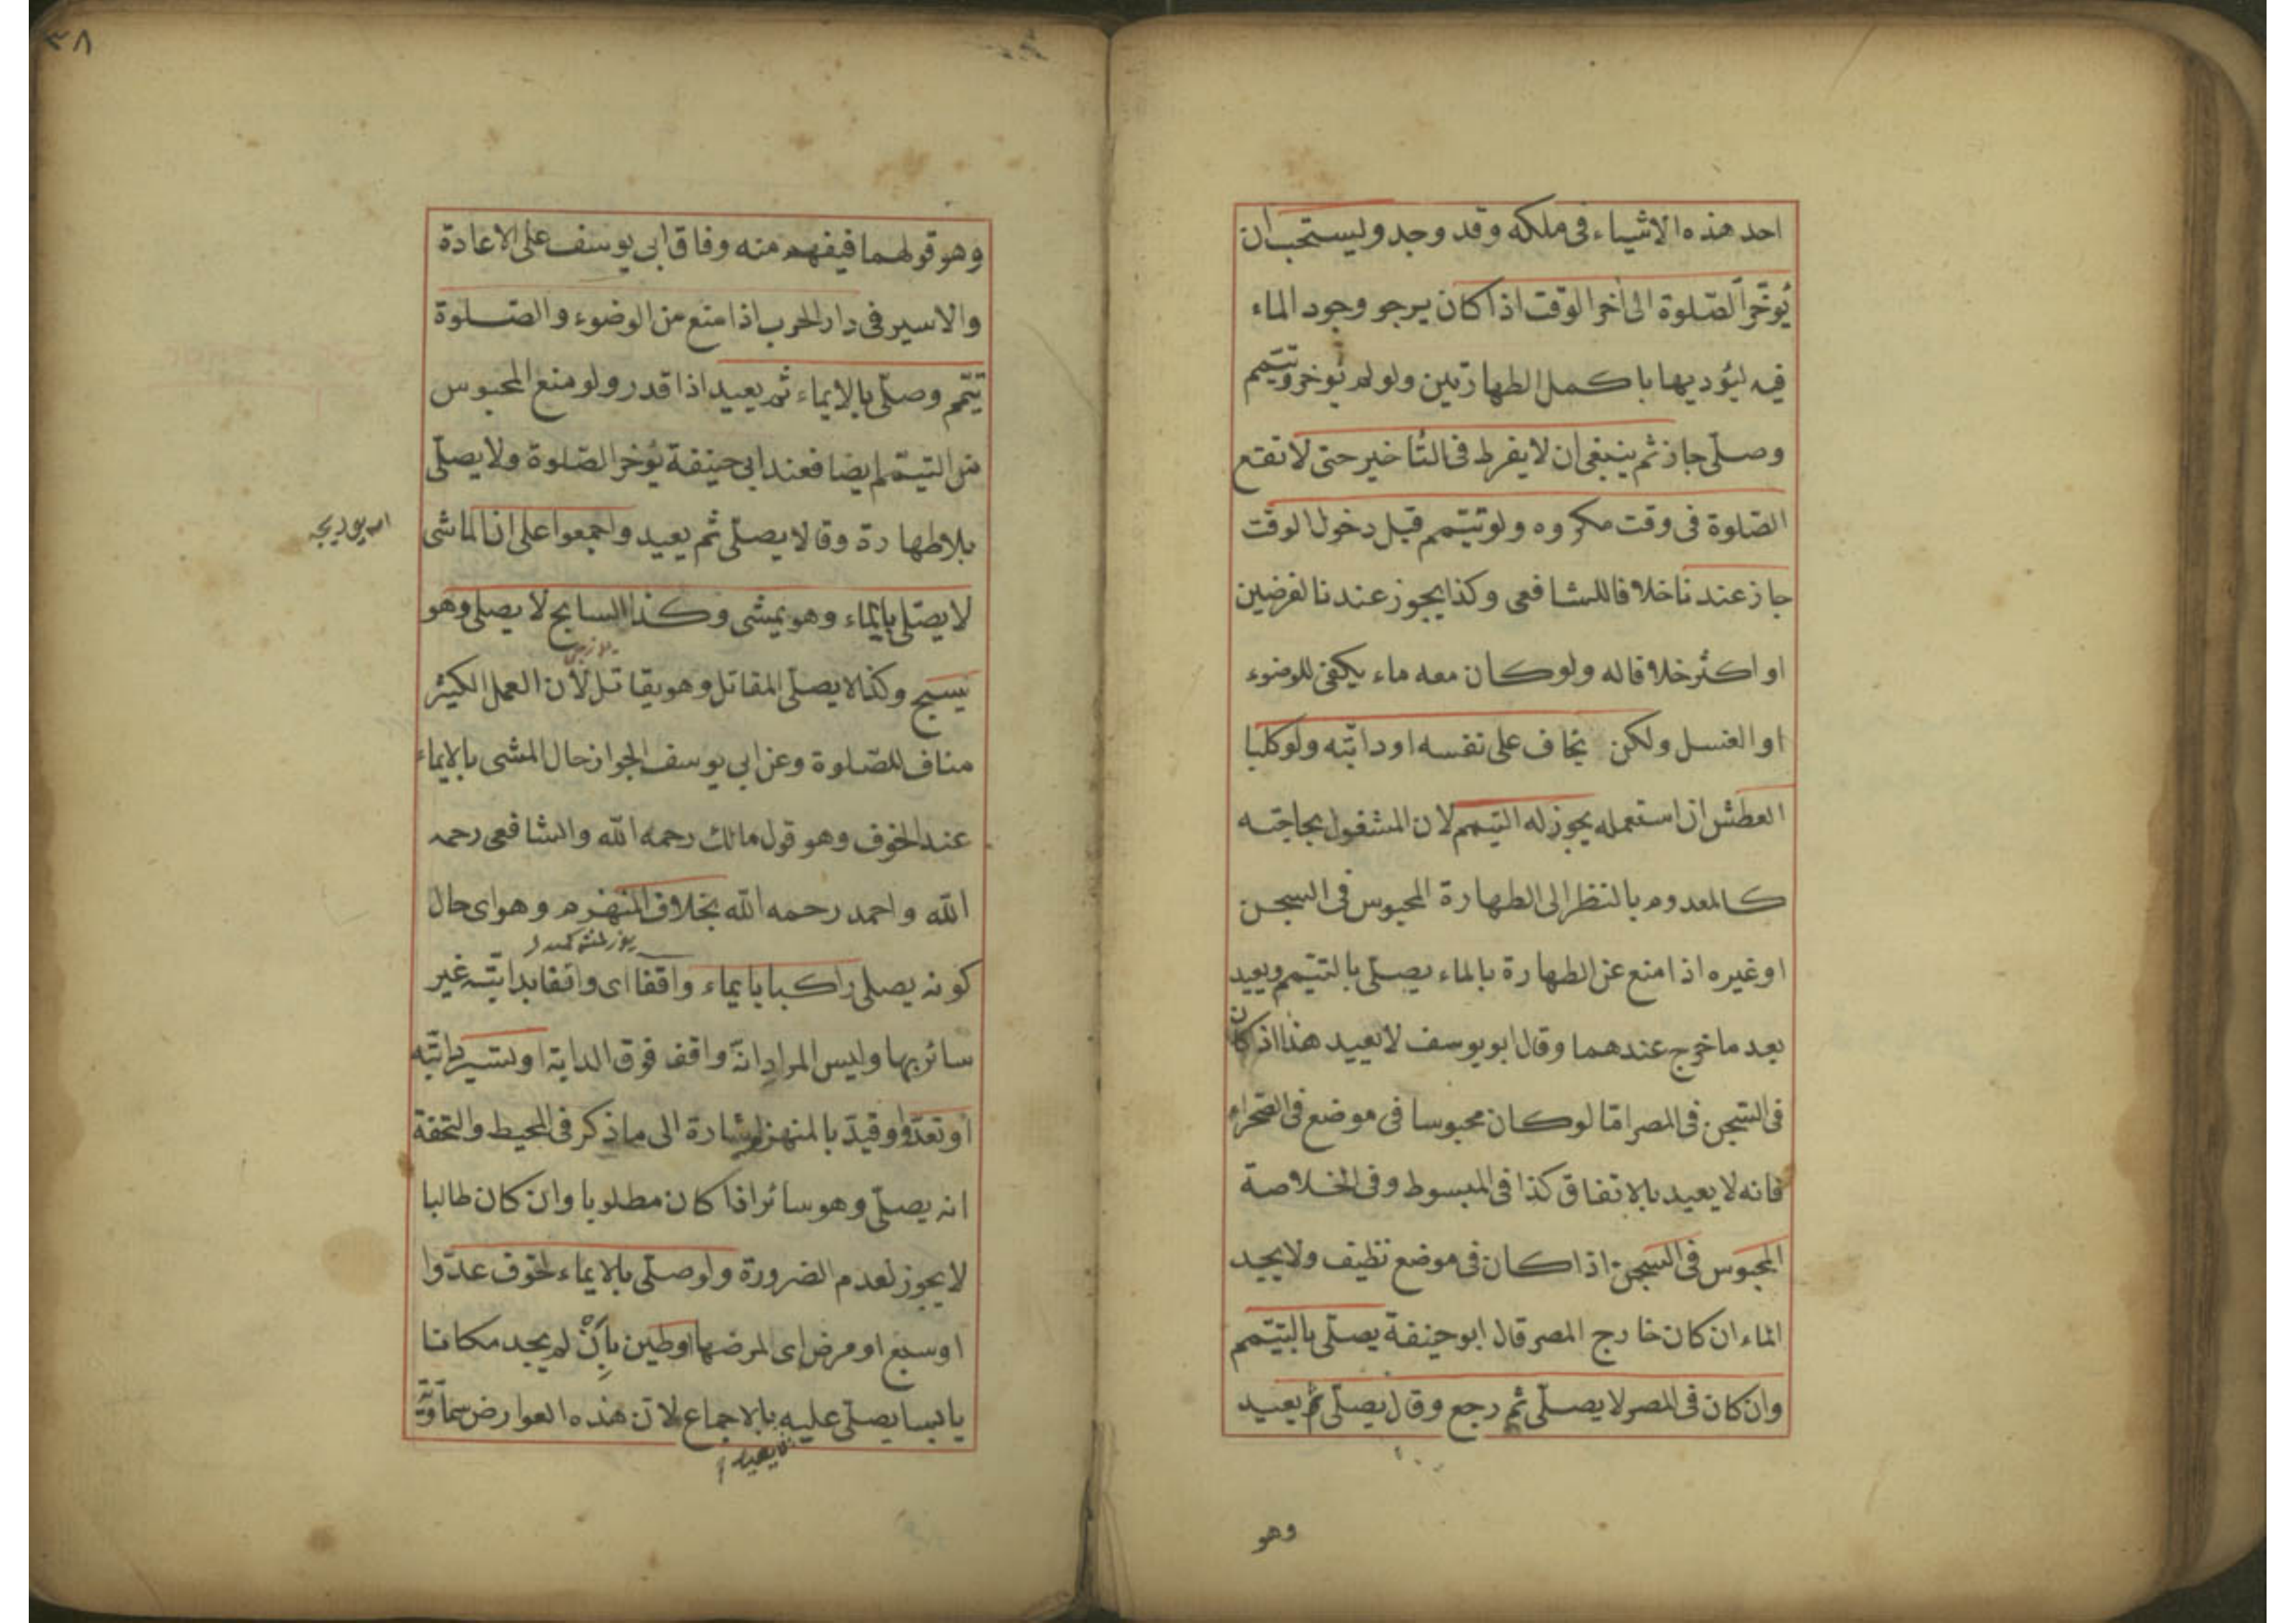 احد هذه الاشياء فى ملكه وقد وجد ويستحب ان
يُؤخّر الصّلوة الى اخر الوقت اذا كان يرجو وجود الماء
فيه ليُؤديها باكمل الطهارتين ولو لم يُوخر وتيمم
وصلّى جاز ثم ينبغى ان لا يفرط فى التّأخير حتى لا تقع
الصّلوة فى وقت مكروه ولو تيّمم قبل دخول الوقت
جاز عندنا خلافا للشافعى وكذا يجوز عندنا لفرضين
او اكثر خلافا له ولو كان معه ماء يكفى للوضوء
او الغسل ولكن يخاف على نفسه او دابّته ولو كلبا
العطش ان استعمله يجوز له التيمم لان المشغول بحاجته
كالمعدوم بالنظر الى الطهارة المحبوس فى السجن
او غيره اذا منع عن الطهارة بالماء يصلّى بالتيّمم ويعيد
بعد ما خرج عندهما وقال ابو يوسف لا يعيد هذا اذ كان
فى السّجن فى المصر امّا لو كان محبوسا فى موضع فى الصحراء
فانه لا يعيد بالاتفاق كذا فى المبسوط وفى الخلاصة
المحبوس فى السجن اذا كان فى موضع نظيف ولا يجد
الماء ان كان خارج المصر قال ابو حنيفة يصلّى بالتيّمم
وان كان فى المصر لا يصلّى ثم رجع وقال يصلّى ثم يعيد
وهو
٣٨
وهو قولهما فيفهم منه وفاق ابى يوسف على الاعادة
والاسير فى دار الحرب اذا منع من الوضوء والصّلوة
تيّمم وصلّى بالايماء ثم يعيد اذا قدر ولو منع المحبوس
من التيّمم ايضا فعند ابى حنيفة يُوخر الصّلوة ولا يصلّى
بلا طهارة وقالا يصلّى ثم يعيد واجمعوا على ان الماشى
لا يصّلى بايماء وهو يمشى وكذا السابح لا يصلى وهو
يسبح وكذا لا يصلّى المقاتل وهو يقاتل لأن العمل الكثير
مناف للصّلوة وعن ابى يوسف الجواز حال المشى بالايماء
عند الخوف وهو قول مالك رحمه الله والشافعى رحمه
الله واحمد رحمه الله بخلاف المنهزم وهو اى حال
كونه يصلى راكبا بايماء واقفا اى واقفا بدابّته غير
سائر بها وليس المراد انّه واقف فوق الدابة او تسير دابّته
او تعدّو وقيدّ بالمنهزم اشارة الى ما ذكر فى المحيط والتحفة
انه يصلّى وهو سائر اذا كان مطلوبا وان كان طالبا
لا يجوز لعدم الضرورة ولو صلّى بالايماء لخوف عدّوا
او سبع او مرض اى لمرضها او طين بِأَنْ لم يجد مكانا
يابسا يصلّى عليه بالاجماع لان هذه العوارض سماَوَّية
لا يعيد